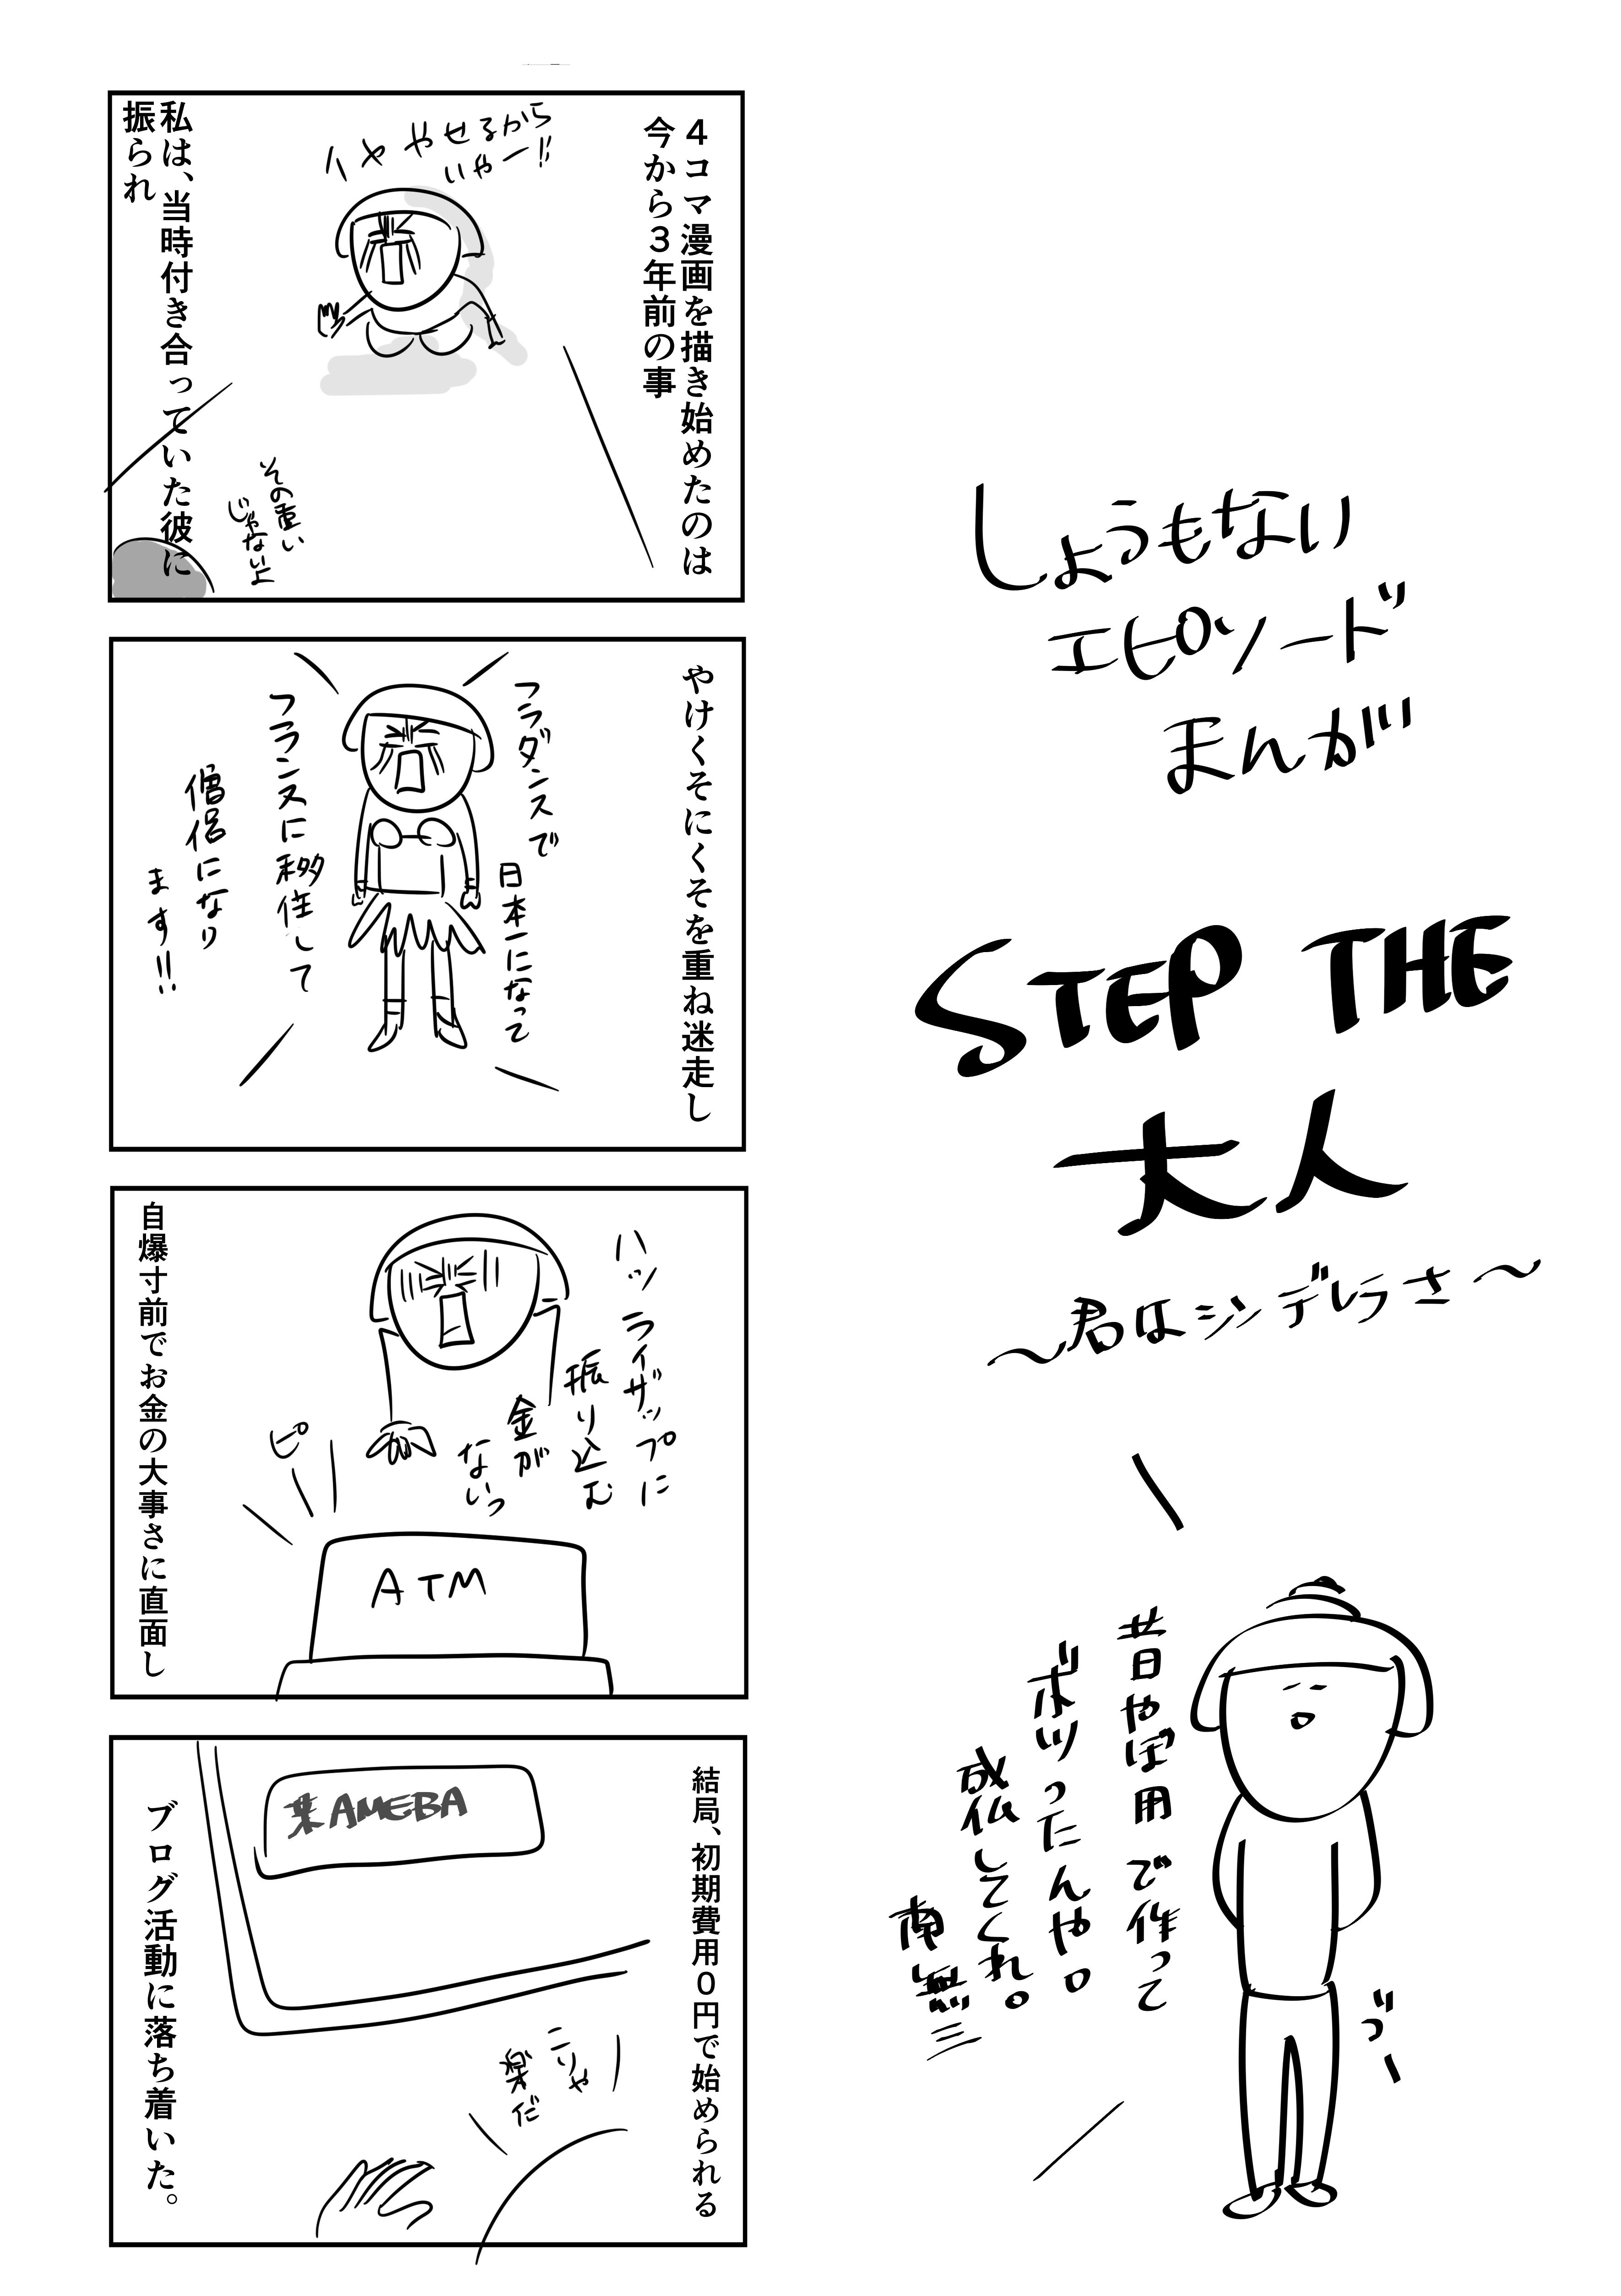 しょうもない
エピソード
まんが
STEP THE
大人
〜君はシンデレラさ〜
昔やぼ用で作って
ボツったんや。
成仏してくれ。
南無三
づー
4コマ漫画を描き始めたのは
今から3年前の事
やせるから
いやー!!
その重い
じゃない上
私は、当時付き合っていた彼に
振られ
やけくそにくそを重ね迷走し
フラダンスで
日本一になって
フランスに移住して
僧侶になり
ます!!
ハッ
ライザップに
振り込む
金が
ないっ
ピー
ATM
自爆寸前でお金の大事さに直面し
結局、初期費用0円で始められる
某AMEBA
こりゃ
楽だ
ブログ活動に落ち着いた。